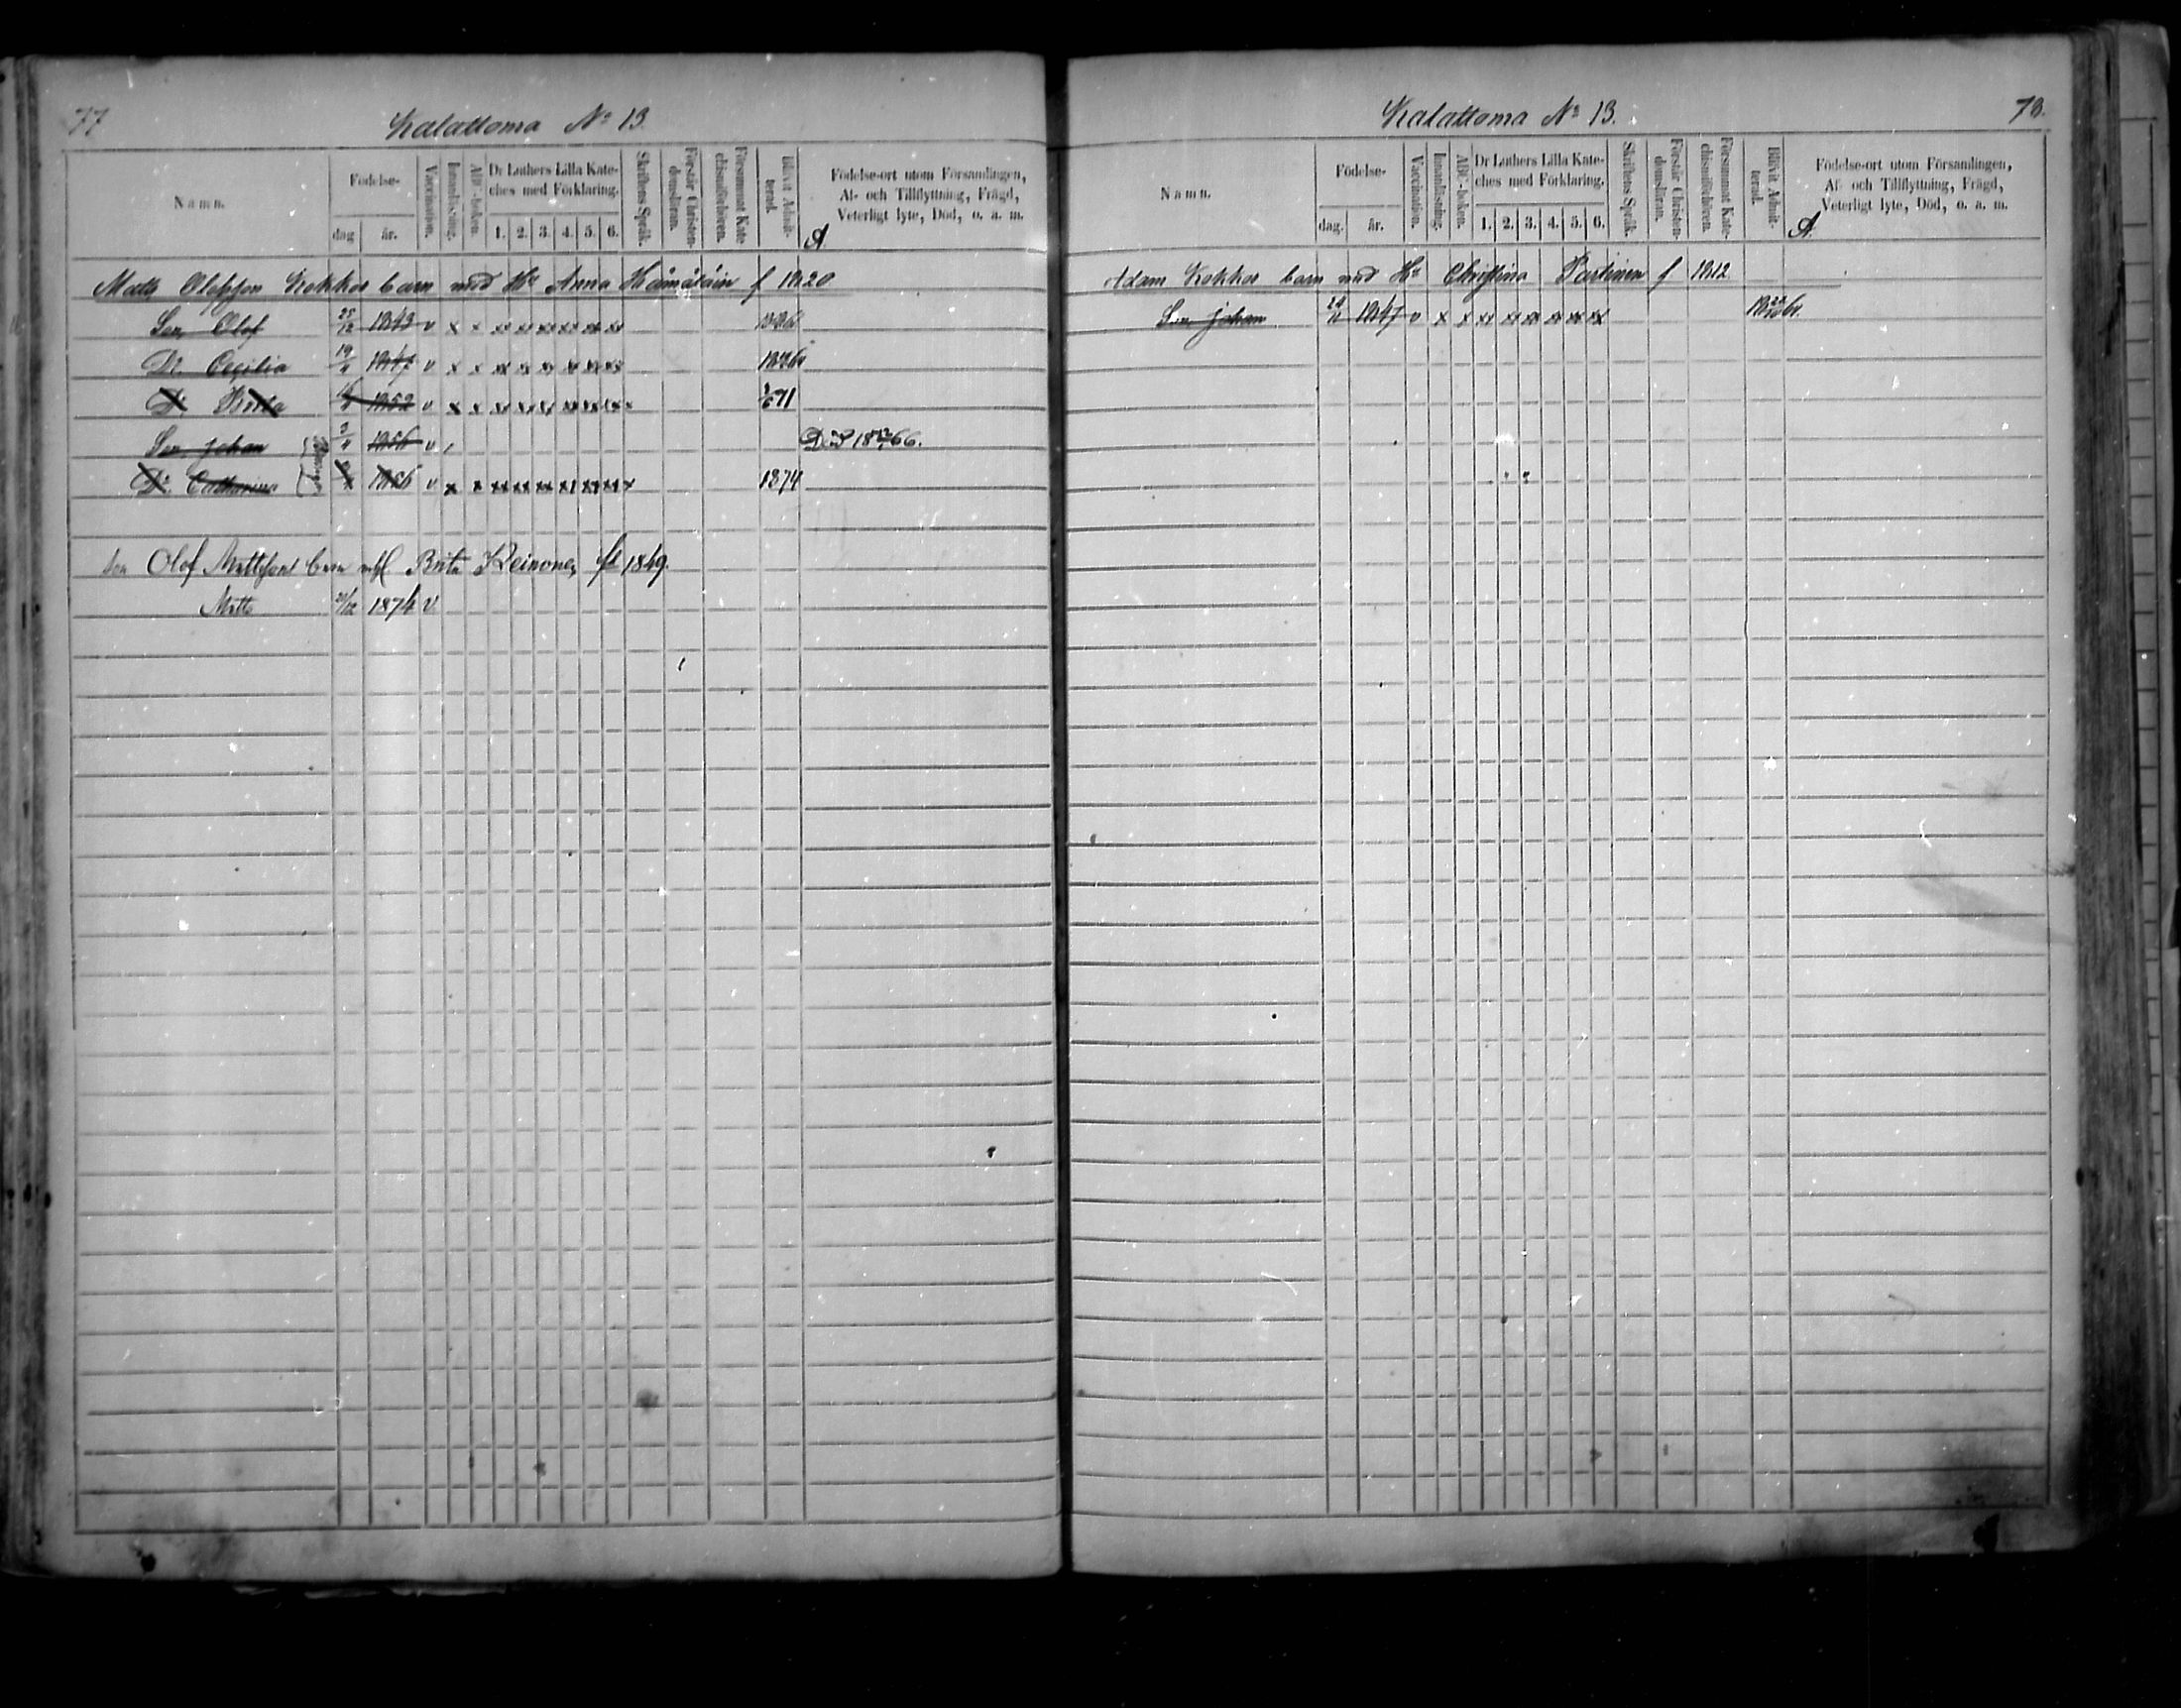 77
Kalattoma No 13
Namn.
Födelse-
dag.
år.
Vaccination.
Innanläsning.
ABC-boken.
Dr Luthers Lilla Kate-
ches med Förklaring.
1. 2. 3. 4. 5. 6.
Skriftens Språk.
Förstår Christen-
domsläran.
Försummat Kate-
chismiförhören.
Blifvit Admit-
terad.
Födelse-ort utom Församlingen,
Af- och Tillflyttning, Frägd,
Veterligt lyte, Död, o. a. m.
A.
Matts Olofsson Kokkos barn med Hu Anna Hämäläin f 1820
Son Olof 25/12 1843 v x x xx xx xx xx xx xx
Dr. Cecilia 19/11 1847 v x x xx xx xx xx xx xx
Dr Brita 1852 v x x xx xx xx xx xx xx 71
Son Johan 3/11 1856 v Död 66.
Dr. Catharina 1856 v x x xx xx xx xx xx xx 1874
Son Olof Mattsson barn m H Brita Reinonen fd 1849.
Matts 21/12 1874 v
78.
Kalattoma No 13.
Namn.
Födelse-
dag.
år.
Vaccination.
Innanläsning.
ABC-boken.
Dr Luthers Lilla Kate-
ches med Förklaring.
1. 2. 3. 4. 5. 6.
Skriftens Språk.
Förstår Christen-
domsläran.
Försummat Kate-
chismiförhören.
Blifvit Admit-
terad.
Födelse-ort utom Församlingen,
Af- och Tillflyttning, Frägd,
Veterligt lyte, Död, o. a. m.
A.
Adam Kokkos barn med Hu Christina Partinen f 1812
Son Johan 24/11 1847 v x x xx xx xx xx xx xx